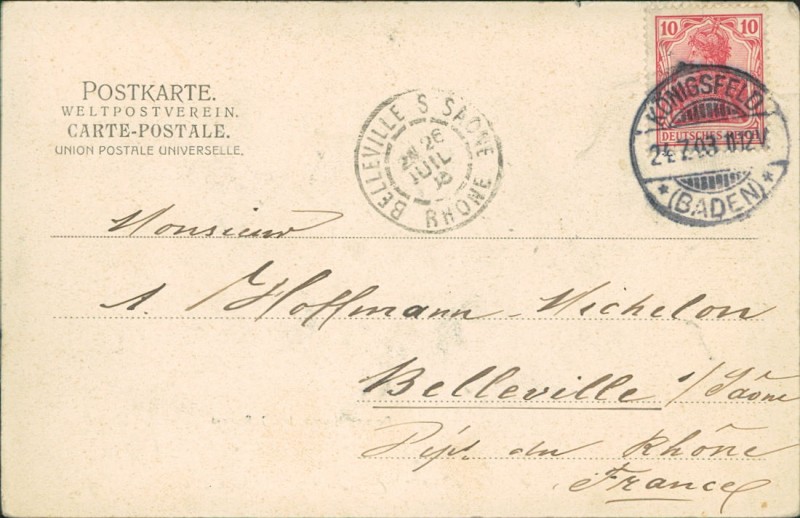 POSTKARTE.
WELTPOSTVEREIN.
CARTE-POSTALE.
UNION POSTALE UNIVERSELLE.
BELLEVILLE S SAÔNE
26
JUIL
RHONE
10 10
DEUTSCHES REICH
KÖNIGSFELD
24.7.03
*(BADEN)*
Monsieur
A. Hoffmann-Michelon
Belleville s/Saône
Dépt. du Rhône
France